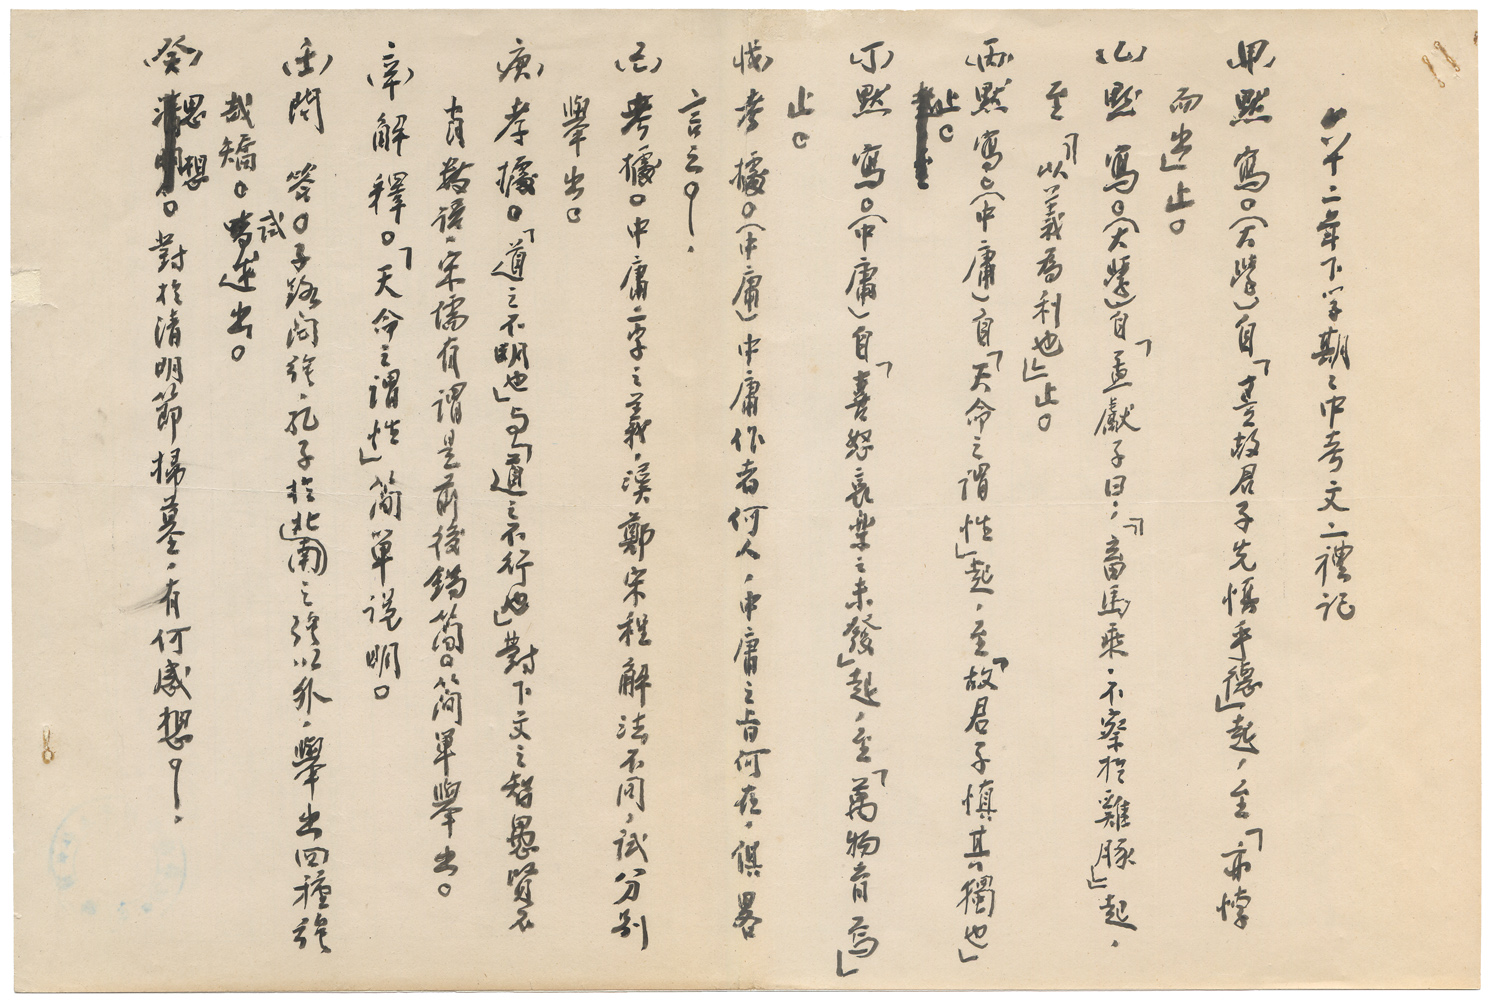 六十二年下学期期中考文二禮記
(甲)默寫。(大學)自「是故君子先慎乎德」起，至「亦悖
而出」止。
(乙)默寫。(大學)自「孟獻子曰，「畜馬乘，不察於雞豚」起，
至「以義為利也」止。
(丙)默寫。(中庸)自「天命之謂性」起，至「故君子慎其獨也」
止。
(丁)默寫。(中庸)自「喜怒哀樂之未發」起，至「萬物育焉」
止。
(戊)考據。(中庸)中庸作者何人，中庸之旨何在，俱畧
言之？
(己)考據。中庸二字之義，漢鄭宋程解法不同，試分別
舉出。
(庚)考據。「道之不明也」与「道之不行也」對下文之智愚賢不
肖數語，宋儒有謂是前後錯簡。简單舉出。
(辛)解釋。「天命之謂性」简單说明。
(壬)問答。子路问強，孔子於北南之強以外，舉出四種強
哉矯。試述出。
(癸)思想。對於清明節掃墓，有何感想？